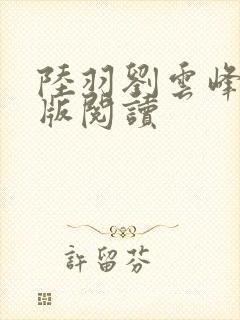 陸羽劉雲峰
版閱讀
許留芬